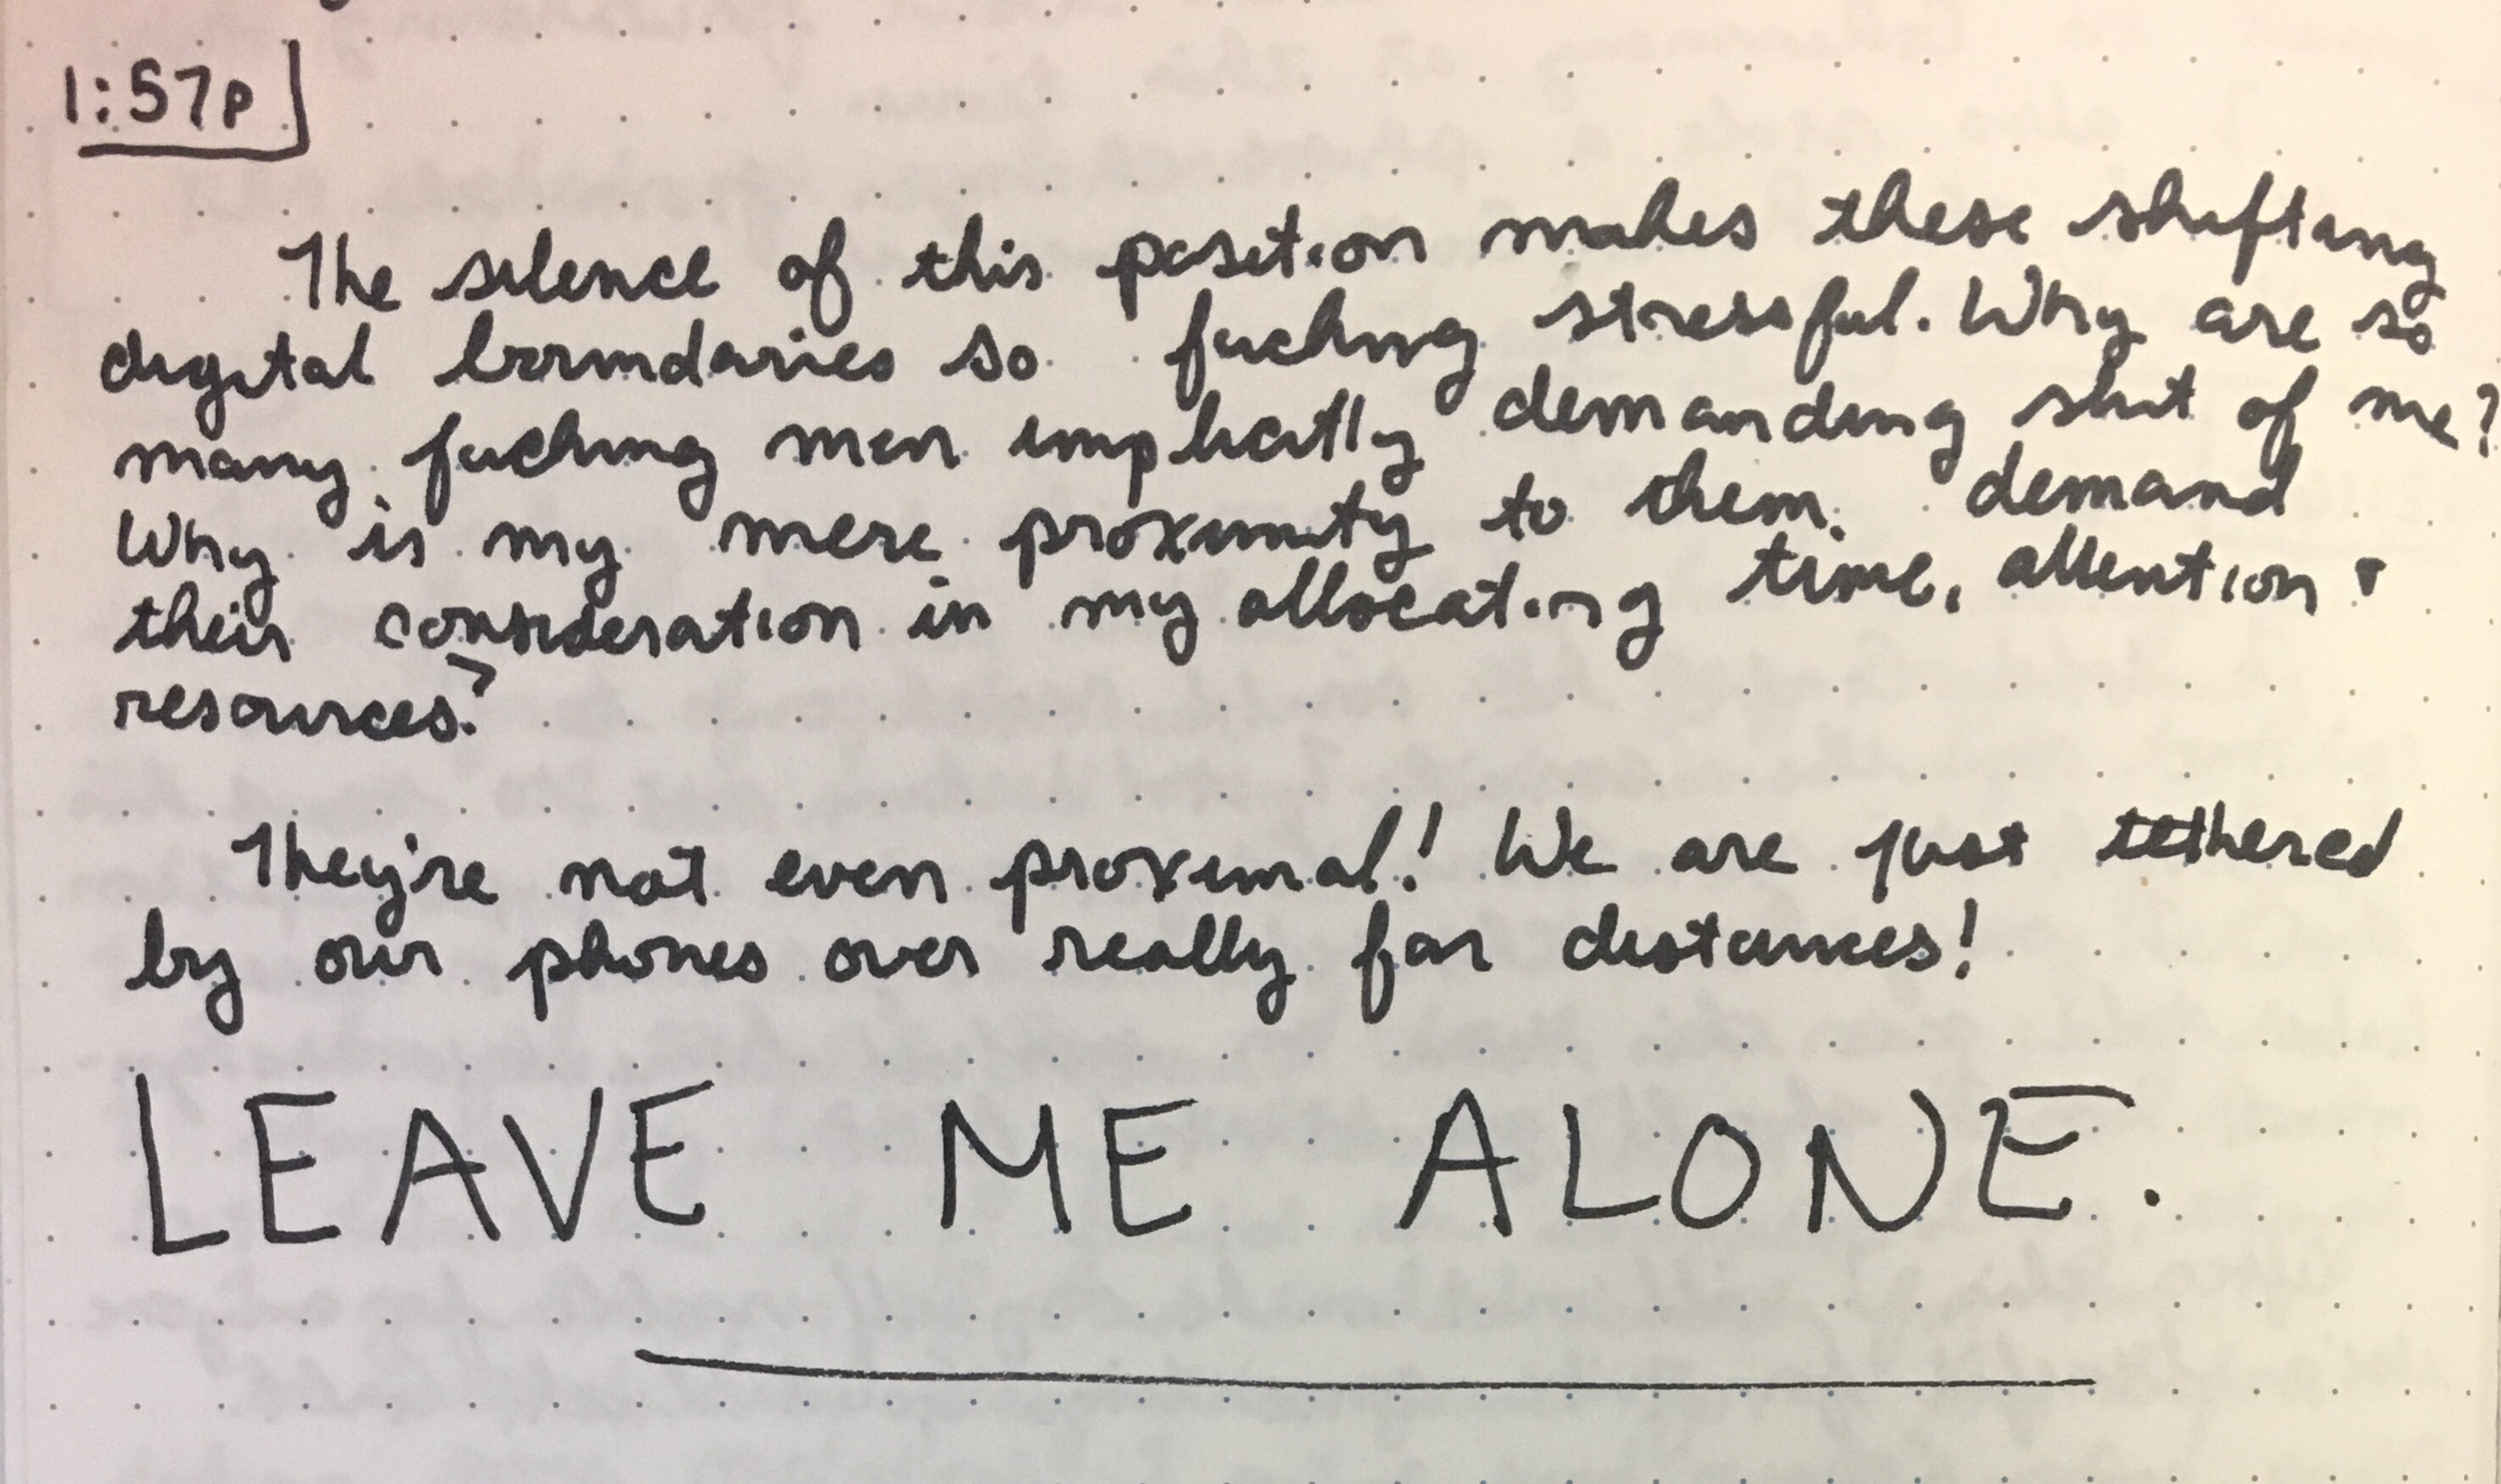 1:57p
The silence of this position makes these shifting
digital boundaries so fucking stressful. Why are so
many fucking men implicitly demanding shit of me?
Why is my mere proximity to them demand
their consideration in my allocating time, attention +
resources?
They're not even proximal! We are just tethered
by our phones over really far distances!
LEAVE ME ALONE.